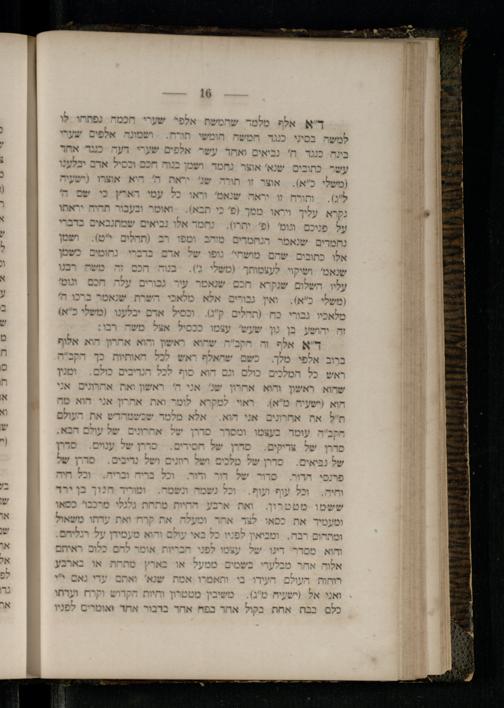 — 16 —
ד״א אלף מלמד שחמשת אלפי׳ שערי חכמה נפתחו לו
למשה בסיני כנגד חמשה חומשי תורה. ושמונה אלפים שערי
בינה כנגד ח׳ נביאים ואחד עשר אלפים שערי דעה כנגד אחד
עשר כתובים שנא׳ אוצר נחמד ושמן בנוה חכם וכסיל אדם יבלענו
(משלי כ״א). אוצר זו תורה שנ׳ יראת ה׳ היא אוצרו (ישעיה
ל״ג). ותורה זו יראה שנאמ׳ וראו כל עמי הארץ כי שם ה׳
נקרא עליך ויראו ממך (פ׳ כי תבא). ואומר ובעבור תהיה יראתו
על פניכם וגומ׳ (פ׳ יתרו). נחמד אלו נביאים שמתנבאים בדברי
נחמדים שנאמר הנחמדים מזהב ומפז רב (תהלים י״ט). ושמן
אלו כתובים שהם מושחי׳ גופו של אדם בדברי נחומים כשמן
שנאמ׳ ושיקוי לעצמותך (משלי ג׳). בנוה חכם זה משה רבנו
עליו השלום שנקרא חכם שנאמר עיר גבורים עלה חכם וגומ׳
(משלי כ״א). ואין גבורים אלא מלאכי השרת שנאמר ברכו ה׳
מלאכיו גבורי כח (תהלים ק״ג). וכסיל אדם יבלענו (משלי כ״א)
זה יהושע בן נון שעש׳ עצמו ככסיל אצל משה רבו:
ד״א אלף זה הקב״ה שהוא ראשון והוא אחרון הוא אלוף
ברוב אלפי מלך. כשם שהאלף ראש לכל האותיות כך הקב״ה
ראש כל המלכים כולם וגם הוא סוף לכל הנדיבים כולם. ומנין
שהוא ראשון והוא אחרון שנ׳ אני ה׳ ראשון ואת אחרונים אני
הוא (ישעיה מ״א). ראוי למקרא לומר ואת אחרון אני הוא מה
ת״ל את אחרונים אני הוא. אלא מלמד שכשמחדש את העולם
הקב״ה עומד בעצמו ומסדר סדרן של אחרונים של עולם הבא,
סדרן של צדיקים. סדרן של חסידים. סדרן של ענוים. סדרן
של נביאים. סדרן של מלכים ושל רוזנים ושל נדיבים. סדרן של
פרנסי הדור. סדור של דור ודור. וכל בריה ובריה. וכל חיה
וחיה. וכל עוף ועוף. וכל נשמה ונשמה. ומוריד חנוך בן ירד
ששמו מטטרון. ואת ארבע החיות מתחת גלגלי מרכבו כסאו
ומעמיד את כסאו לצד אחד ומעלה את קרח ואת עדתו משאול
ומתהום רבה. ומביאין לפניו כל באי עולם והוא מעמידן על רגליהם.
והוא מסדר דינו של עצמו לפני הבריות אומר להם כלום ראיתם
אלוה אחר מבלעדי בשמים ממעל או בארץ מתחת או בארבע
רוחות העולם העידו בי ותאמרו אמת שנא׳ ואתם עדי נאם י״י
ואני אל (ישעיה מ״ג). משיבין מטטרון וחיות הקדוש וקרח ועדתו
כלם בבת אחת בקול אחד בפה אחד בדבור אחד ואומרים לפניו